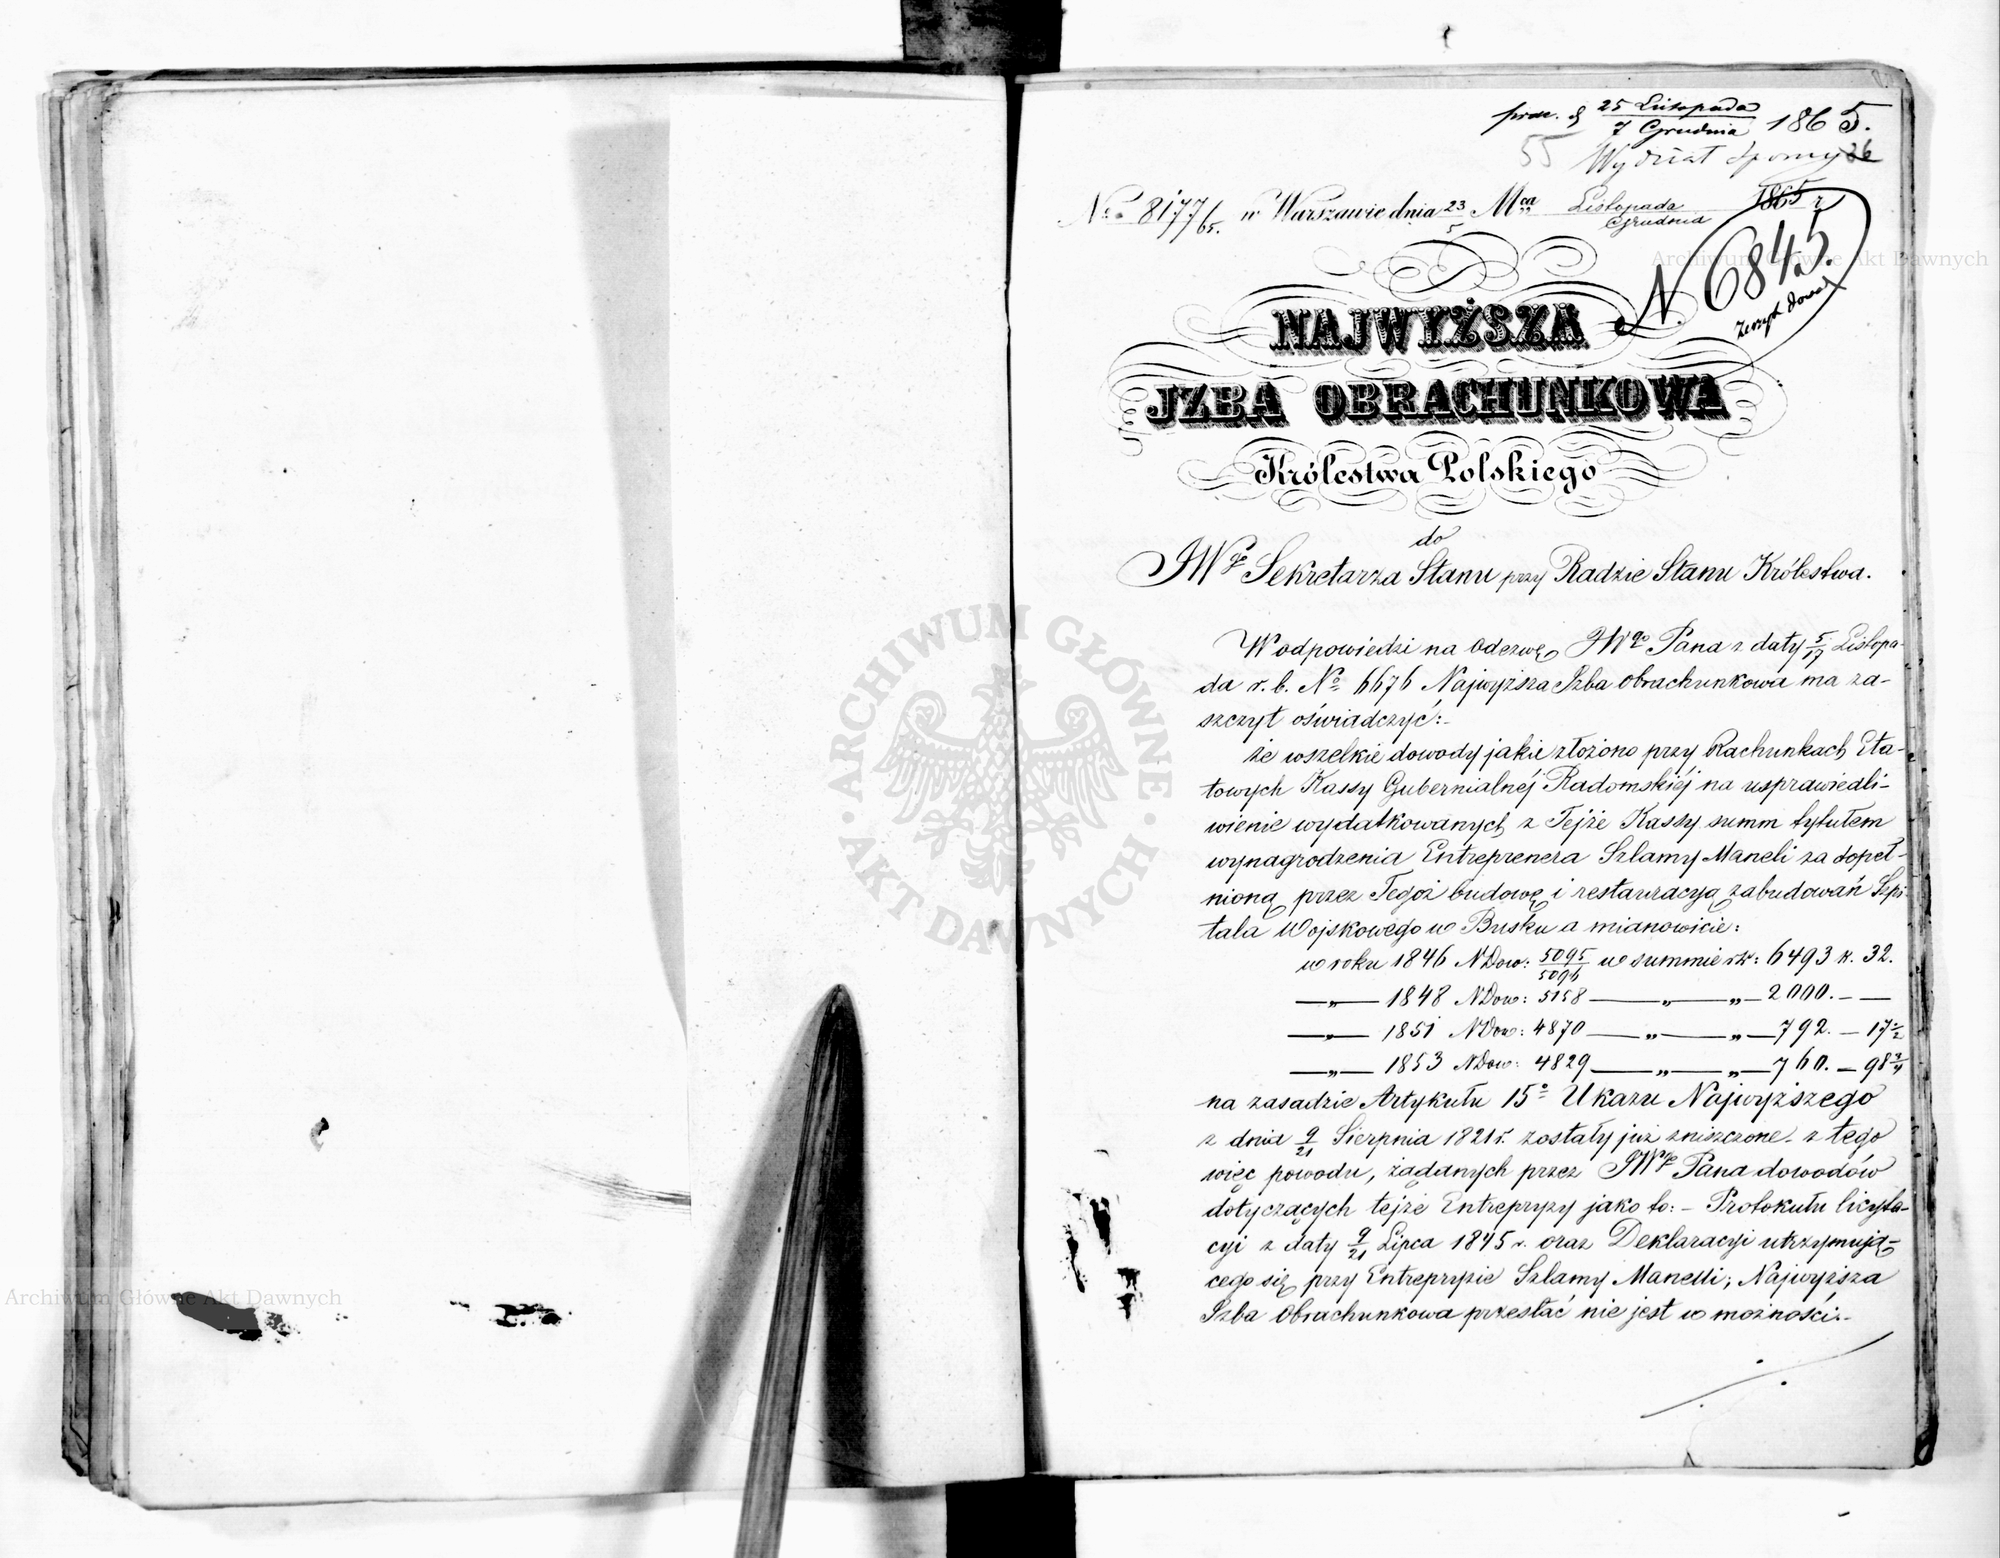 prez. d 25 Listopada / 7 Grudnia 1865.
55 Wydział Sporny
№ 8177/65. w Warszawie dnia 23/5 Mca Listopada/Grudnia 1865 r.
N. 6845.
NAJWYŻSZA
JZBA OBRACHUNKOWA
Królestwa Polskiego
do
JWgo Sekretarza Stanu przy Radzie Stanu Królestwa.
W odpowiedzi na odezwę JWgo Pana z daty 5/17 Listopa-
da r. b. № 6676 Najwyższa Izba Obrachunkowa ma za-
szczyt oświadczyć:-
że wszelkie dowody jakie złożono przy Rachunkach Eta-
towych Kassy Gubernialnéj Radomskiéj na usprawiedli-
wienie wydatkowanych z Tejże Kassy summ tytułem
wynagrodzenia Entreprenera Szlamy Maneli za dopeł-
nioną przez Tegoż budowę i restauracyą zabudowań Szpi-
tala Wojskowego w Busku a mianowicie:
w roku 1846 NDow: 5095/5096 w summie rs: 6493 k. 32.
—„— 1848 NDow: 5158 —„—„— 2000. — —
—„— 1851 NDow: 4870 —„—„— 792. — 17 1/2
—„— 1853 NDow: 4829 —„—„— 760. — 98 3/4
na zasadzie Artykułu 15o Ukazu Najwyższego
z dnia 9/21 Sierpnia 1821 r. zostały już zniszczone - z tego
więc powodu, żądanych przez JWgo Pana dowodów
dotyczących tejże Entrepryzy jako to: - Protokułu licyta-
cyi z daty 9/21 Lipca 1845 r. oraz Deklaracyi utrzymują-
cego się przy Entrepryzie Szlamy Manelli; Najwyższa
Izba Obrachunkowa przesłać nie jest w możności.-
ARCHIWUM GŁÓWNE · AKT DAWNYCH ·
Archiwum Główne Akt Dawnych
Archiwum Główne Akt Dawnych